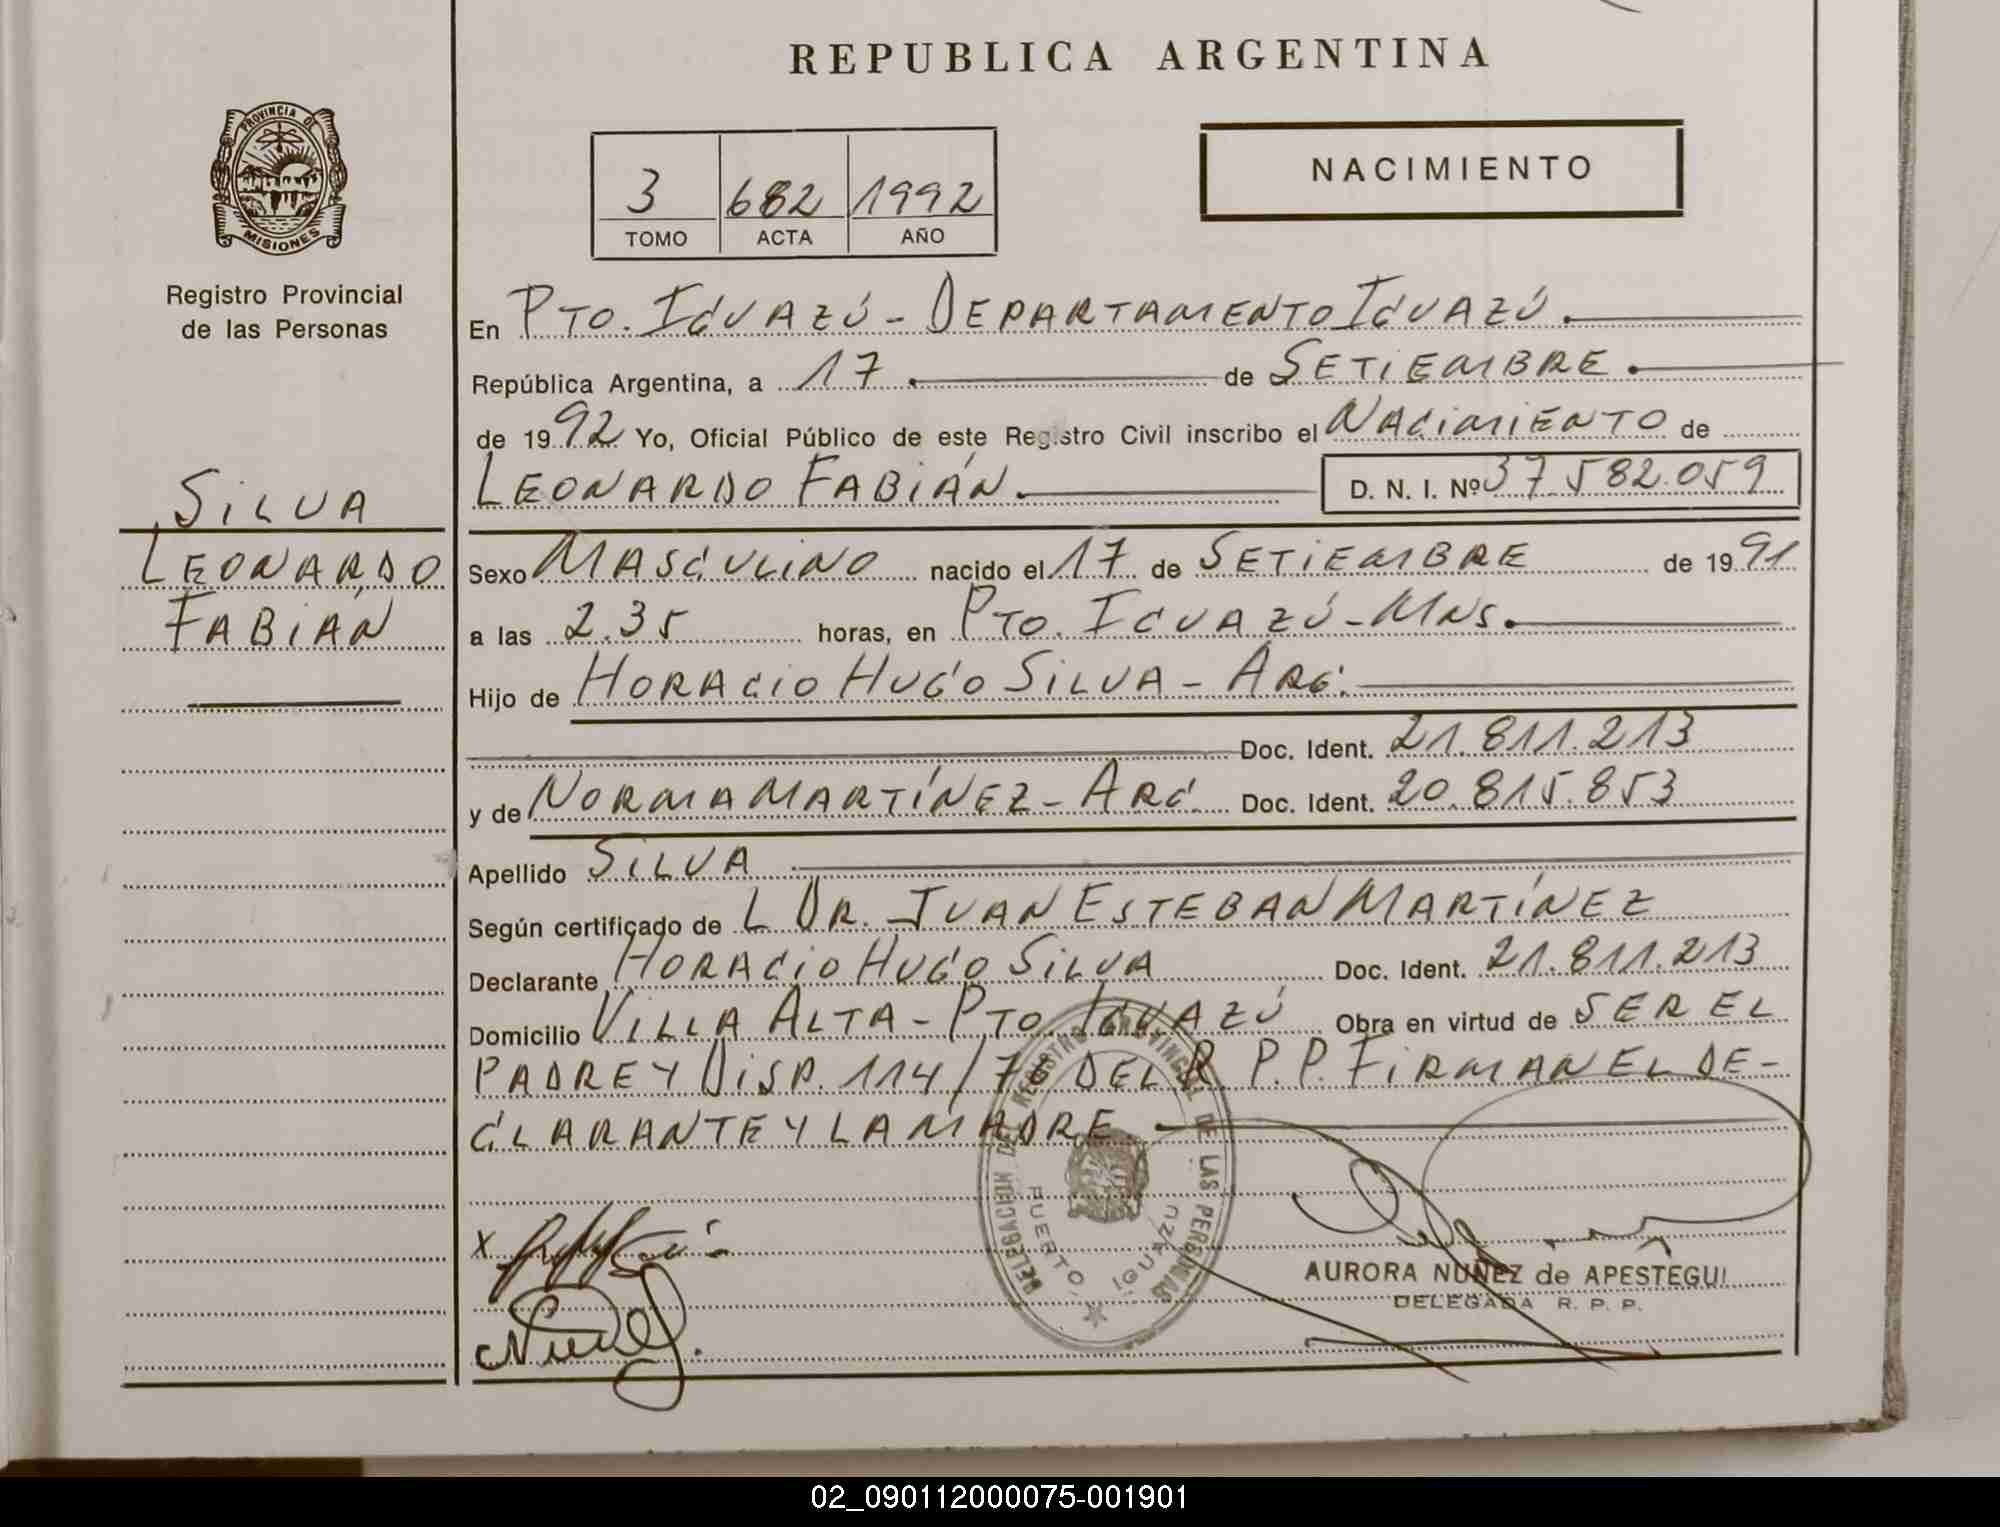 REPUBLICA ARGENTINA
PROVINCIA DE
MISIONES
Registro Provincial
de las Personas
3 682 1992
TOMO ACTA AÑO
NACIMIENTO
En PTO. IGUAZÚ - DEPARTAMENTO IGUAZÚ.
República Argentina, a 17 de SETIEMBRE.
de 1992 Yo, Oficial Público de este Registro Civil inscribo el NACIMIENTO de
LEONARDO FABIÁN. D. N. I. Nº 37.582.059
SILVA
LEONARDO
FABIÁN
Sexo MASCULINO nacido el 17 de SETIEMBRE de 1991
a las 2.35 horas, en PTO. IGUAZÚ - MNS.
Hijo de HORACIO HUGO SILVA - ARG.
Doc. Ident. 21.811.213
y de NORMA MARTÍNEZ - ARG. Doc. Ident. 20.815.853
Apellido SILVA
Según certificado de L DR. JUAN ESTEBAN MARTÍNEZ
Declarante HORACIO HUGO SILVA Doc. Ident. 21.811.213
Domicilio VILLA ALTA - PTO. IGUAZÚ Obra en virtud de SER EL
PADRE Y DISP. 114/78 DEL R. P. P. FIRMAN EL DE-
CLARANTE Y LA MADRE.
DELEGACION DEL REGISTRO PROVINCIAL DE LAS PERSONAS
PUERTO IGUAZÚ
X
AURORA NUÑEZ de APESTEGUI
DELEGADA R. P. P.
02_090112000075-001901